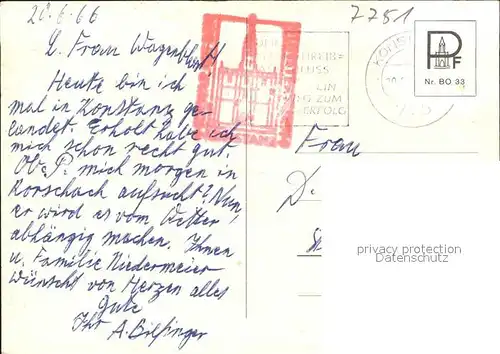 20.6.66
L. Frau Wagenblast!
Heute bin ich
mal in Konstanz ge-
landet. Erholt habe ich
mich schon recht gut.
Ob P. mich morgen in
Rorschach aufsucht? Nun,
er wird es vom Wetter
abhängig machen. Ihnen
u. Familie Niedermeier
wünscht von Herzen alles
Gute
Ihr A. Bilfinger
7751
ZUM
ERFOLG
PF
Nr. BO 33
Frau
D.
privacy protection
Datenschutz